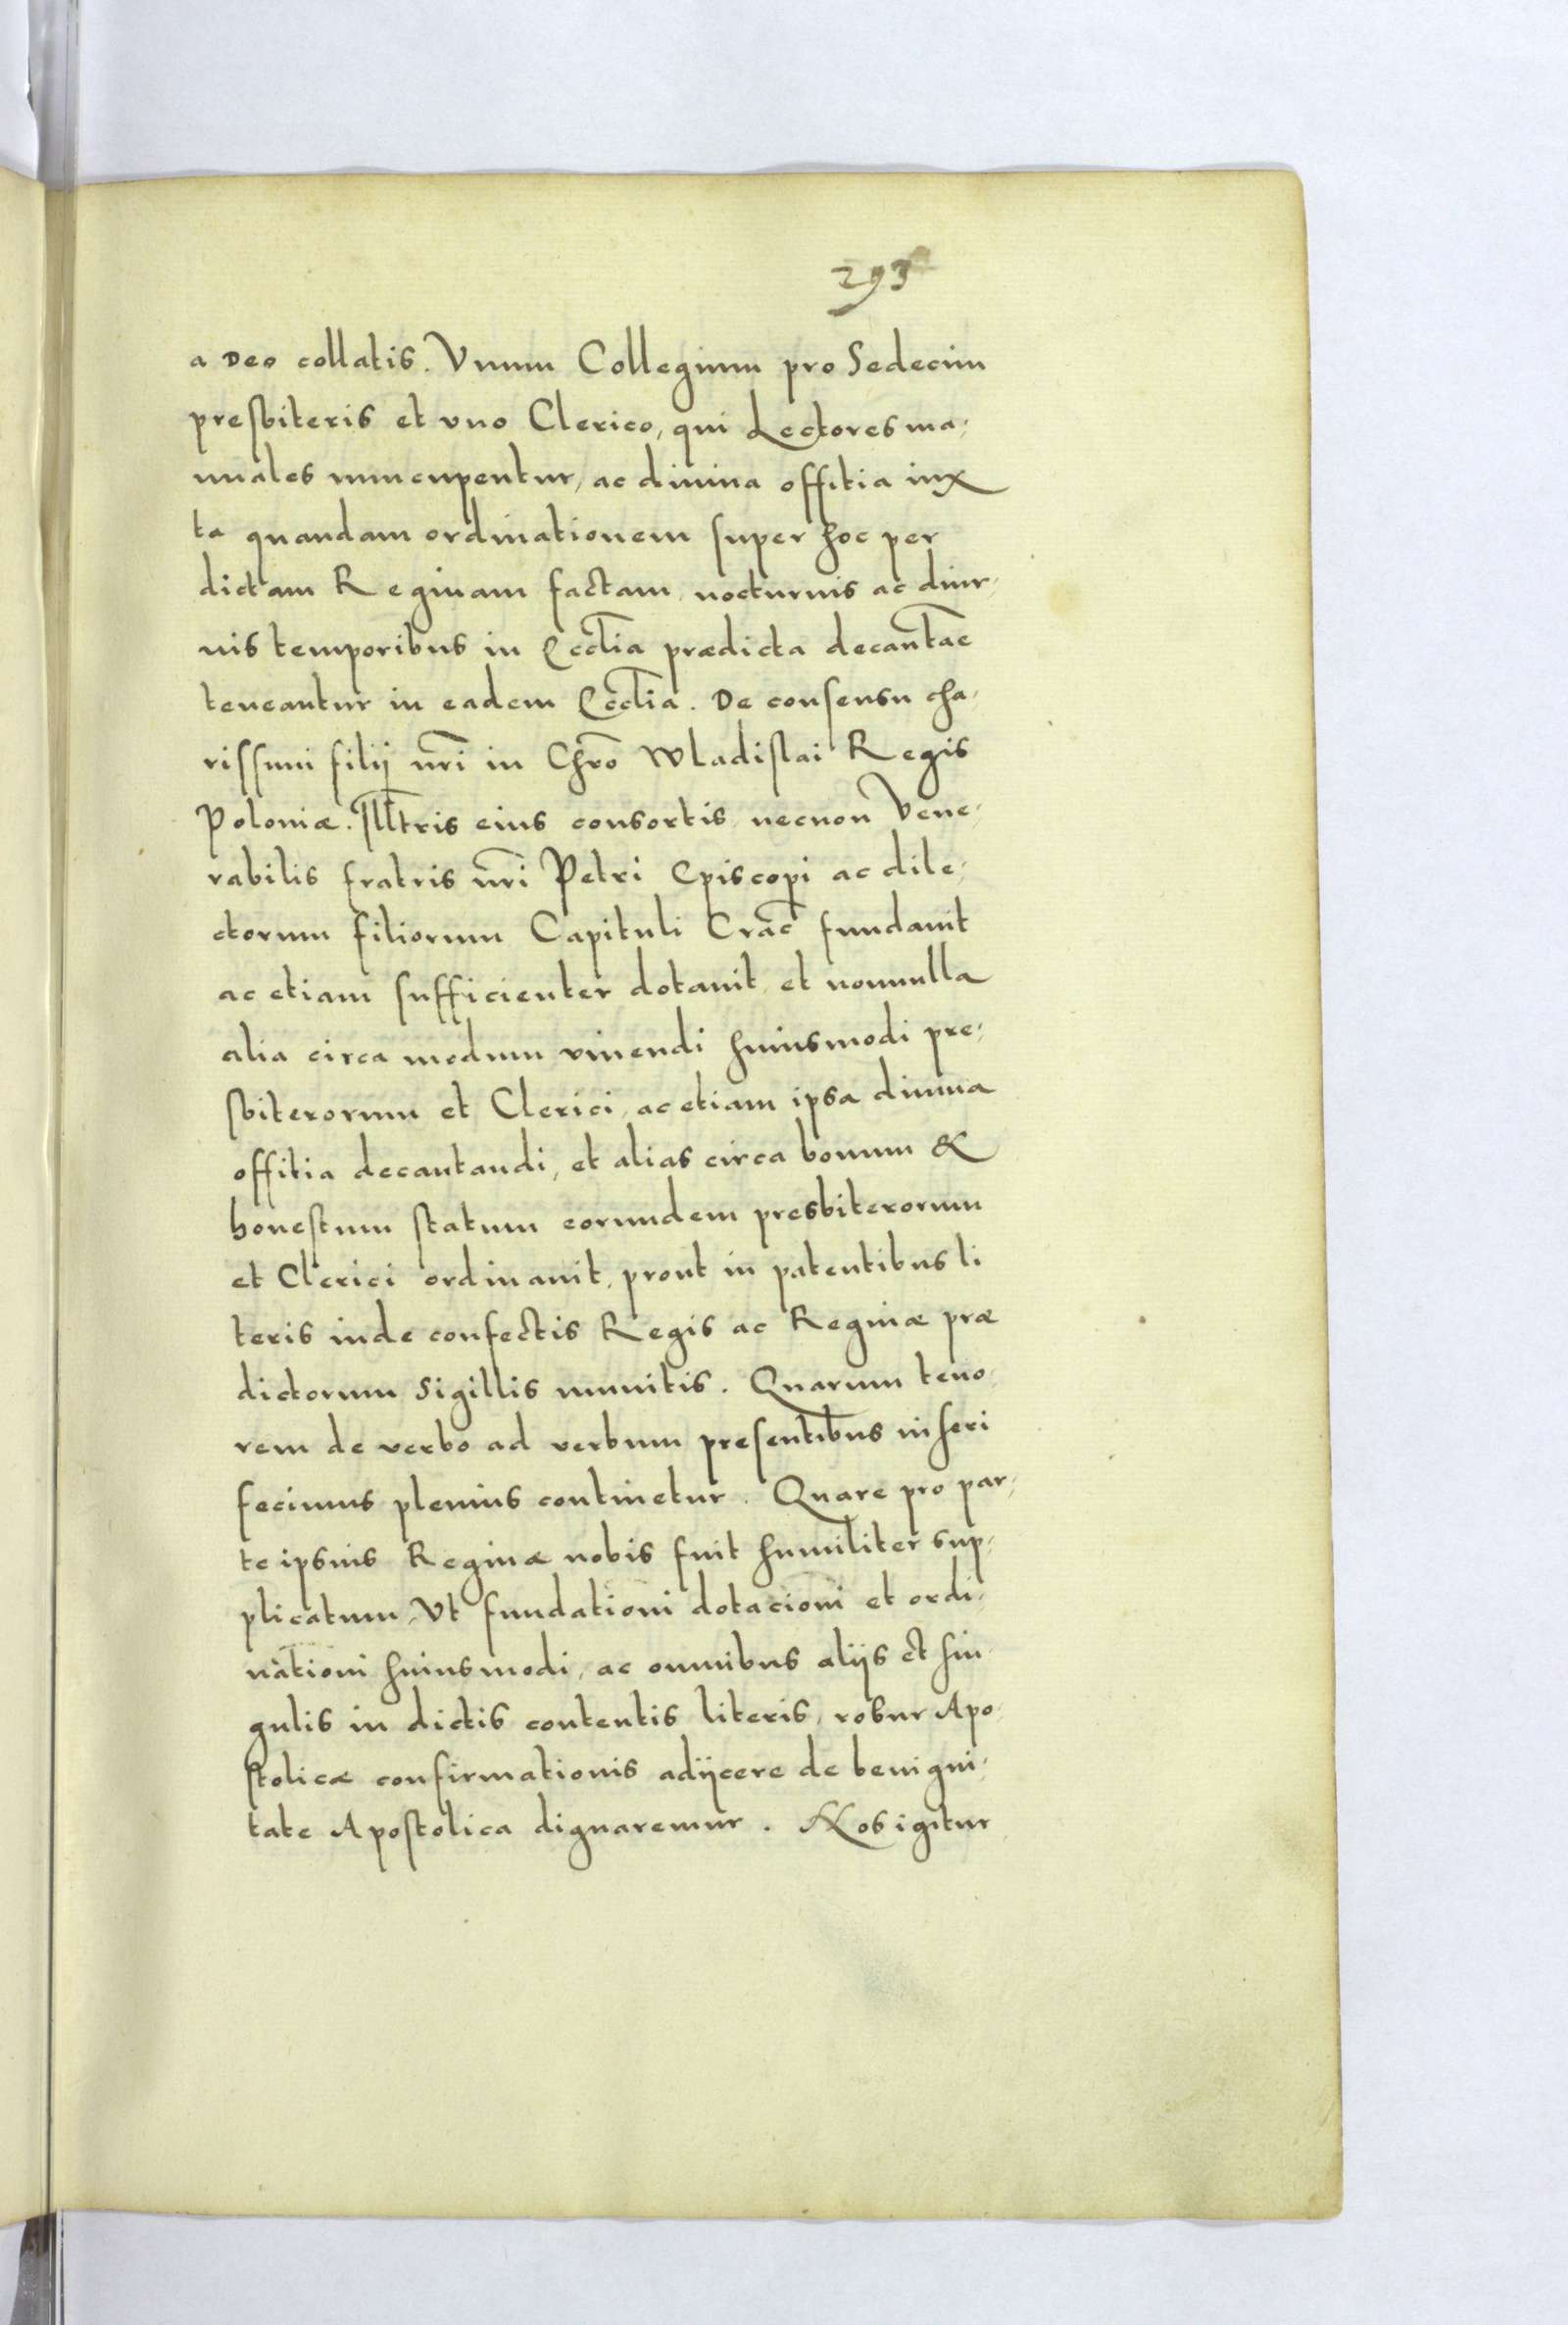 293
a Deo collatis. Vnum Collegium pro Sedecim
presbiteris et vno Clerico, qui Lectores ma,
nuales nuncupentur, ac diuina offitia iux
ta quandam ordinationem super hoc per
dictam Reginam factam, nocturnis ac diur,
nis temporibus in Ecclia prædicta decantāe
teneantur in eadem Ecclia. De consensu cha,
rissimi filij nr̃i in Chr̃o Wladislai Regis
Poloniæ. Ill̃tris eius consortis, necnon Vene,
rabilis fratris nr̃i Petri Episcopi ac dile,
ctorum filiorum Capituli Crac̃ fundauit
ac etiam sufficienter dotauit, et nonnulla
alia circa modum viuendi huiusmodi pre,
sbiterorum et Clerici, ac etiam ipsa diuina
offitia decantandi, et alias circa bonum &
honestum statum eorundem presbiterorum
et Clerici ordinauit, prout in patentibus li
teris inde confectis Regis ac Reginæ præ
dictorum Sigillis munitis. Quarum teno,
rem de verbo ad verbum presentibus inseri
fecimus plenius continetur. Quare pro par,
te ipsius Reginæ nobis fuit humiliter sup,
plicatum, Vt fundationi dotacioni et ordi,
nationi huiusmodi, ac omnibus alijs et sin,
gulis in dictis contentis literis, robur Apo,
stolicæ confirmationis adijcere de benigni,
tate Apostolica dignaremur. Nos igitur